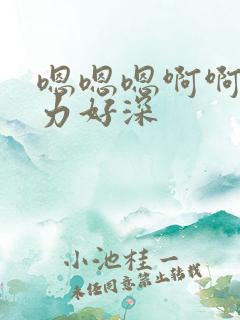 嗯嗯嗯啊啊
力好深
小池桂一
未经同意禁止转载